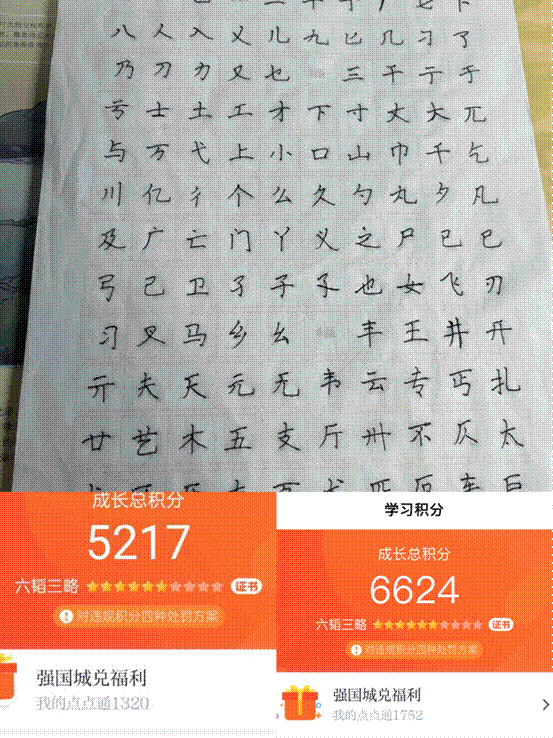 八人入乂儿九匕几刁了
乃刀力又乜 三干亍于
亏士土工才下寸丈大兀
与万弋上小口山巾千乞
川亿彳个么久勺丸夕凡
及广亡门丫义之尸已巳
弓己卫孑子孓也女飞刃
习叉马乡幺 丰王井开
亓夫天元无韦云专丐扎
廿艺木五支厅卅不仄太
成长总积分
5217
六韬三略 证书
对违规积分四种处罚方案
强国城兑福利
我的点点通1320
学习积分
成长总积分
6624
六韬三略 证书
对违规积分四种处罚方案
强国城兑福利
我的点点通1752